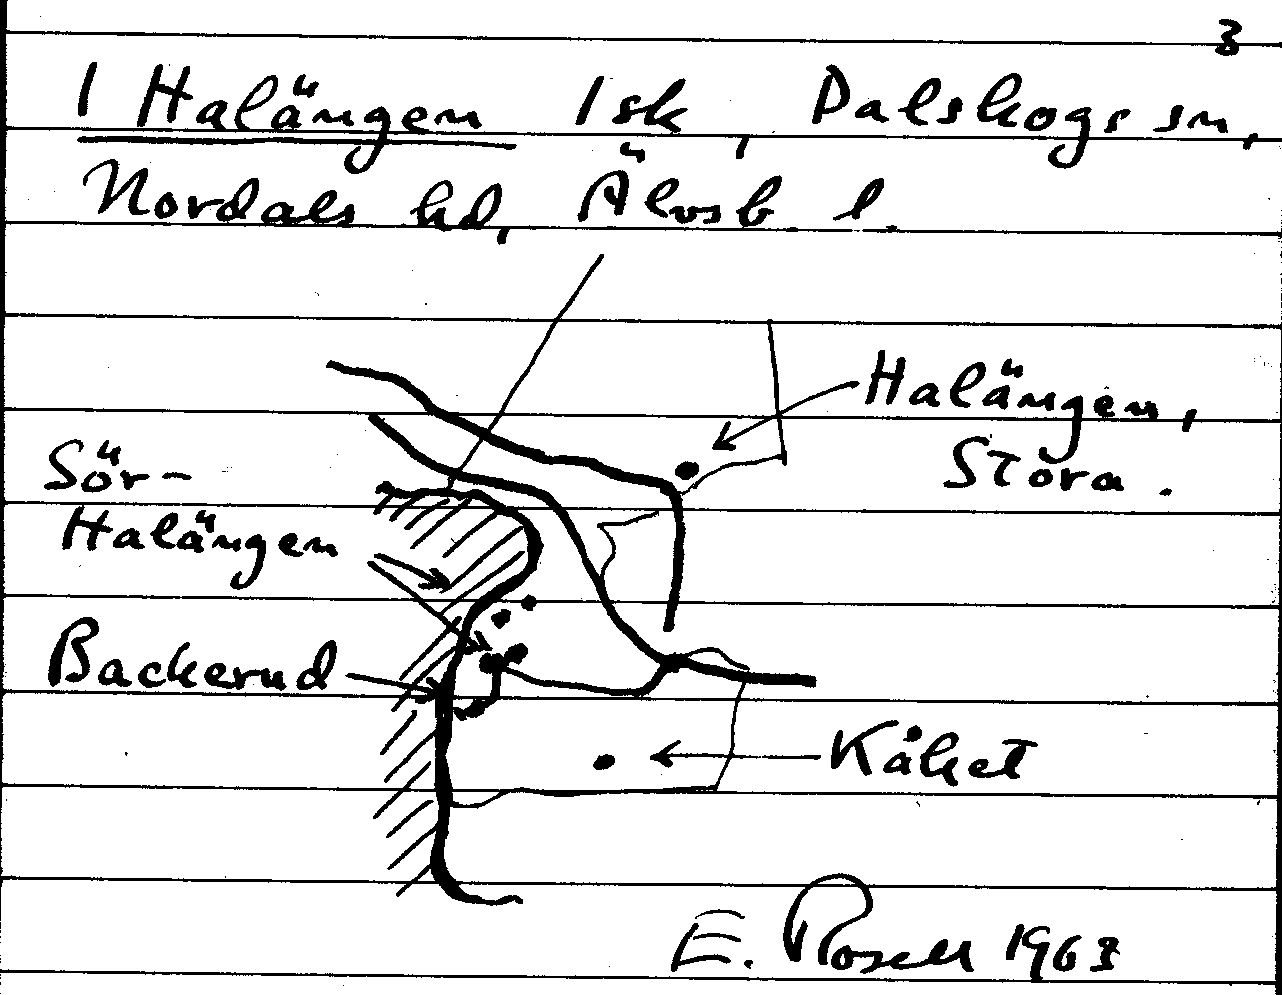 3
1 Halängen 1 sk, Dalskogs sn,
Nordals hd, Älvsb. l.
Halängen,
Stora.
Sör-
Halängen
Backerud
Kåhet
E. Rosell 1963